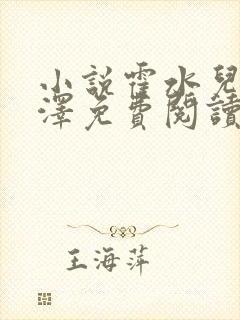 小說霍水兒
澤免費閱讀
王海萍